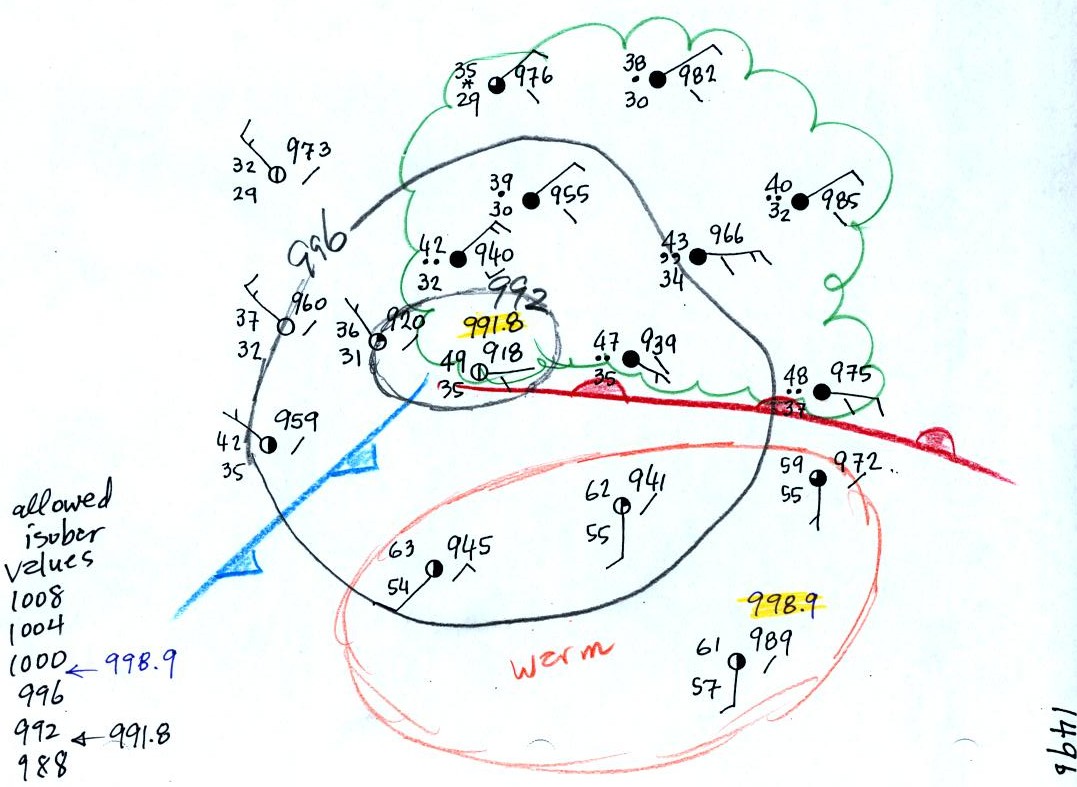 35 976
*
29
38 982
30
32 973
29
39 955
30
40 985
32
996
42 940
32
43 966
34
992
37 960
32
36 920
31
991.8
49 918
35
47 939
35
48 975
37
42 959
35
62 941
55
59 972
55
63 945
54
998.9
warm
61 989
57
allowed
isobar
values
1008
1004
1000 ← 998.9
996
992 ← 991.8
988
149b